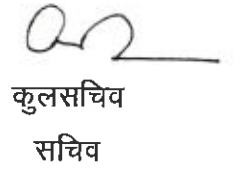 कुलसचिव
सचिव